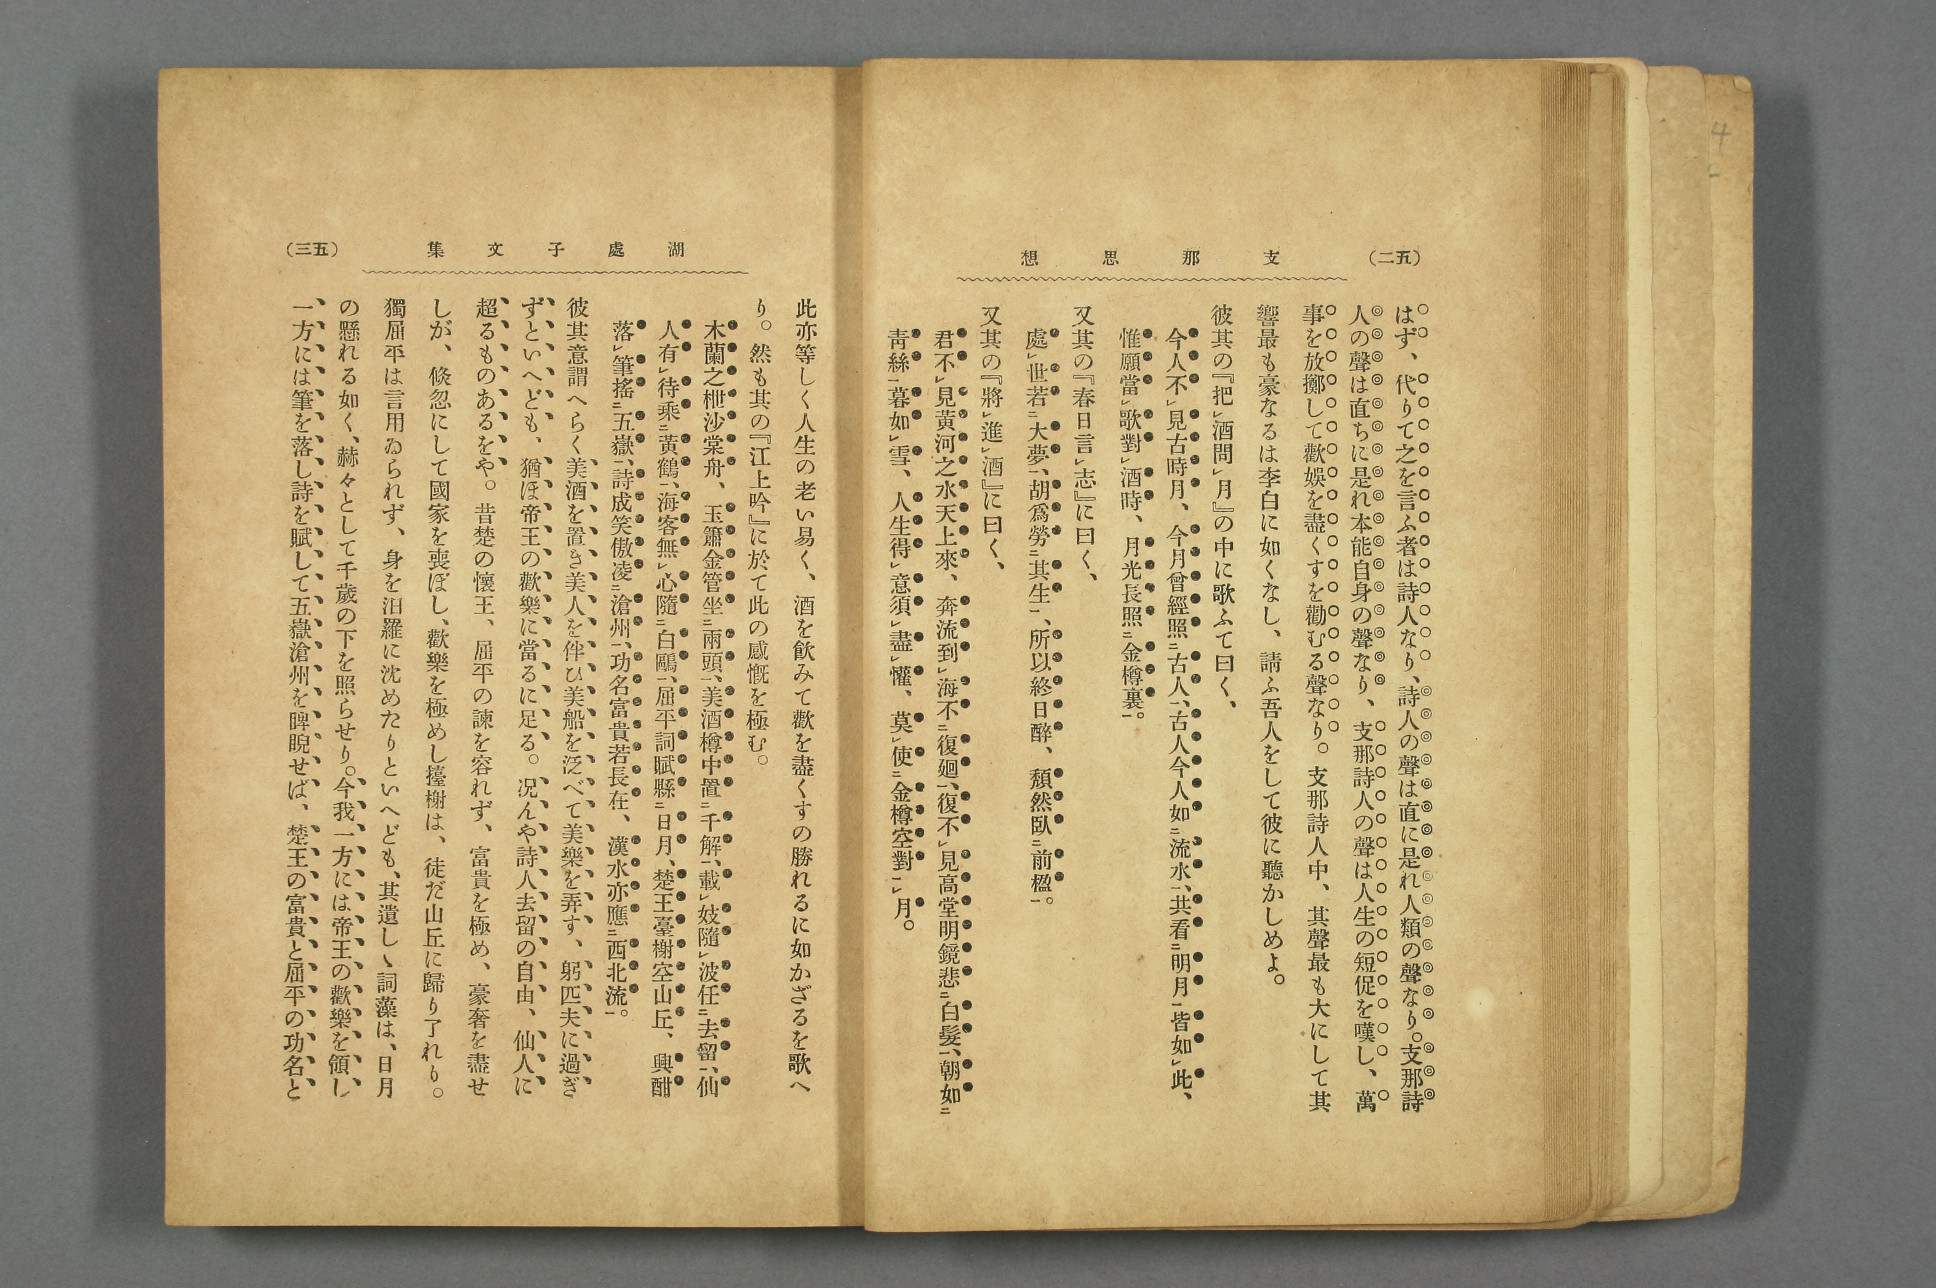 (五二)
支那思想
はず、代りて之を言ふ者は詩人なり、詩人の聲は直に是れ人類の聲なり。支那詩
人の聲は直ちに是れ本能自身の聲なり、支那詩人の聲は人生の短促を嘆し、萬
事を放擲して歡娯を盡くすを勸むる聲なり。支那詩人中、其聲最も大にして其
響最も豪なるは李白に如くなし、請ふ吾人をして彼に聽かしめよ。
彼其の『把㆑酒問㆑月』の中に歌ふて曰く、
今人不㆑見古時月、今月曾經照㆓古人㆒、古人今人如㆓流水㆒、共看㆓明月㆒皆如㆑此、
惟願當㆑歌對㆑酒時、月光長照㆓金樽裏㆒。
又其の『春日言㆑志』に曰く、
處㆑世若㆓大夢㆒、胡爲勞㆓其生㆒、所以終日醉、頽然臥㆓前楹㆒。
又其の『將㆑進㆑酒』に曰く、
君不㆑見黃河之水天上來、奔流到㆑海不㆓復廻㆒、復不㆑見高堂明鏡悲㆓白髮㆒、朝如㆓
靑絲㆒暮如㆑雪、人生得㆑意須㆑盡㆑懽、莫㆑使㆓金樽空對㆒㆑月。
湖處子文集
(五三)
此亦等しく人生の老い易く、酒を飮みて歡を盡くすの勝れるに如かざるを歌へ
り。然も其の『江上吟』に於て此の感慨を極む。
木蘭之枻沙棠舟、玉簫金管坐㆓兩頭㆒、美酒樽中置㆓千斛㆒、載㆑妓隨㆑波任㆓去留㆒、仙
人有㆑待乘㆓黃鶴㆒、海客無㆑心隨㆓白鷗㆒、屈平詞賦縣㆓日月㆒、楚王臺榭空山丘、興酣
落㆑筆搖㆓五嶽㆒、詩成笑傲凌㆓滄州㆒、功名富貴若長在、漢水亦應㆓西北流㆒。
彼其意謂へらく美酒を置き美人を伴ひ美船を泛べて美樂を弄す、躬匹夫に過ぎ
ずといへども、猶ほ帝王の歡樂に當るに足る。况んや詩人去留の自由、仙人に
超るものあるをや。昔楚の懷王、屈平の諫を容れず、富貴を極め、豪奢を盡せ
しが、倏忽にして國家を喪ぼし、歡樂を極めし擡榭は、徒だ山丘に歸り了れり。
獨屈平は言用ゐられず、身を汨羅に沈めたりといへども、其遺しゝ詞藻は、日月
の懸れる如く、赫々として千歲の下を照らせり。今我一方には帝王の歡樂を領し
一方には筆を落し詩を賦して五嶽滄州を睥睨せば、楚王の富貴と屈平の功名と